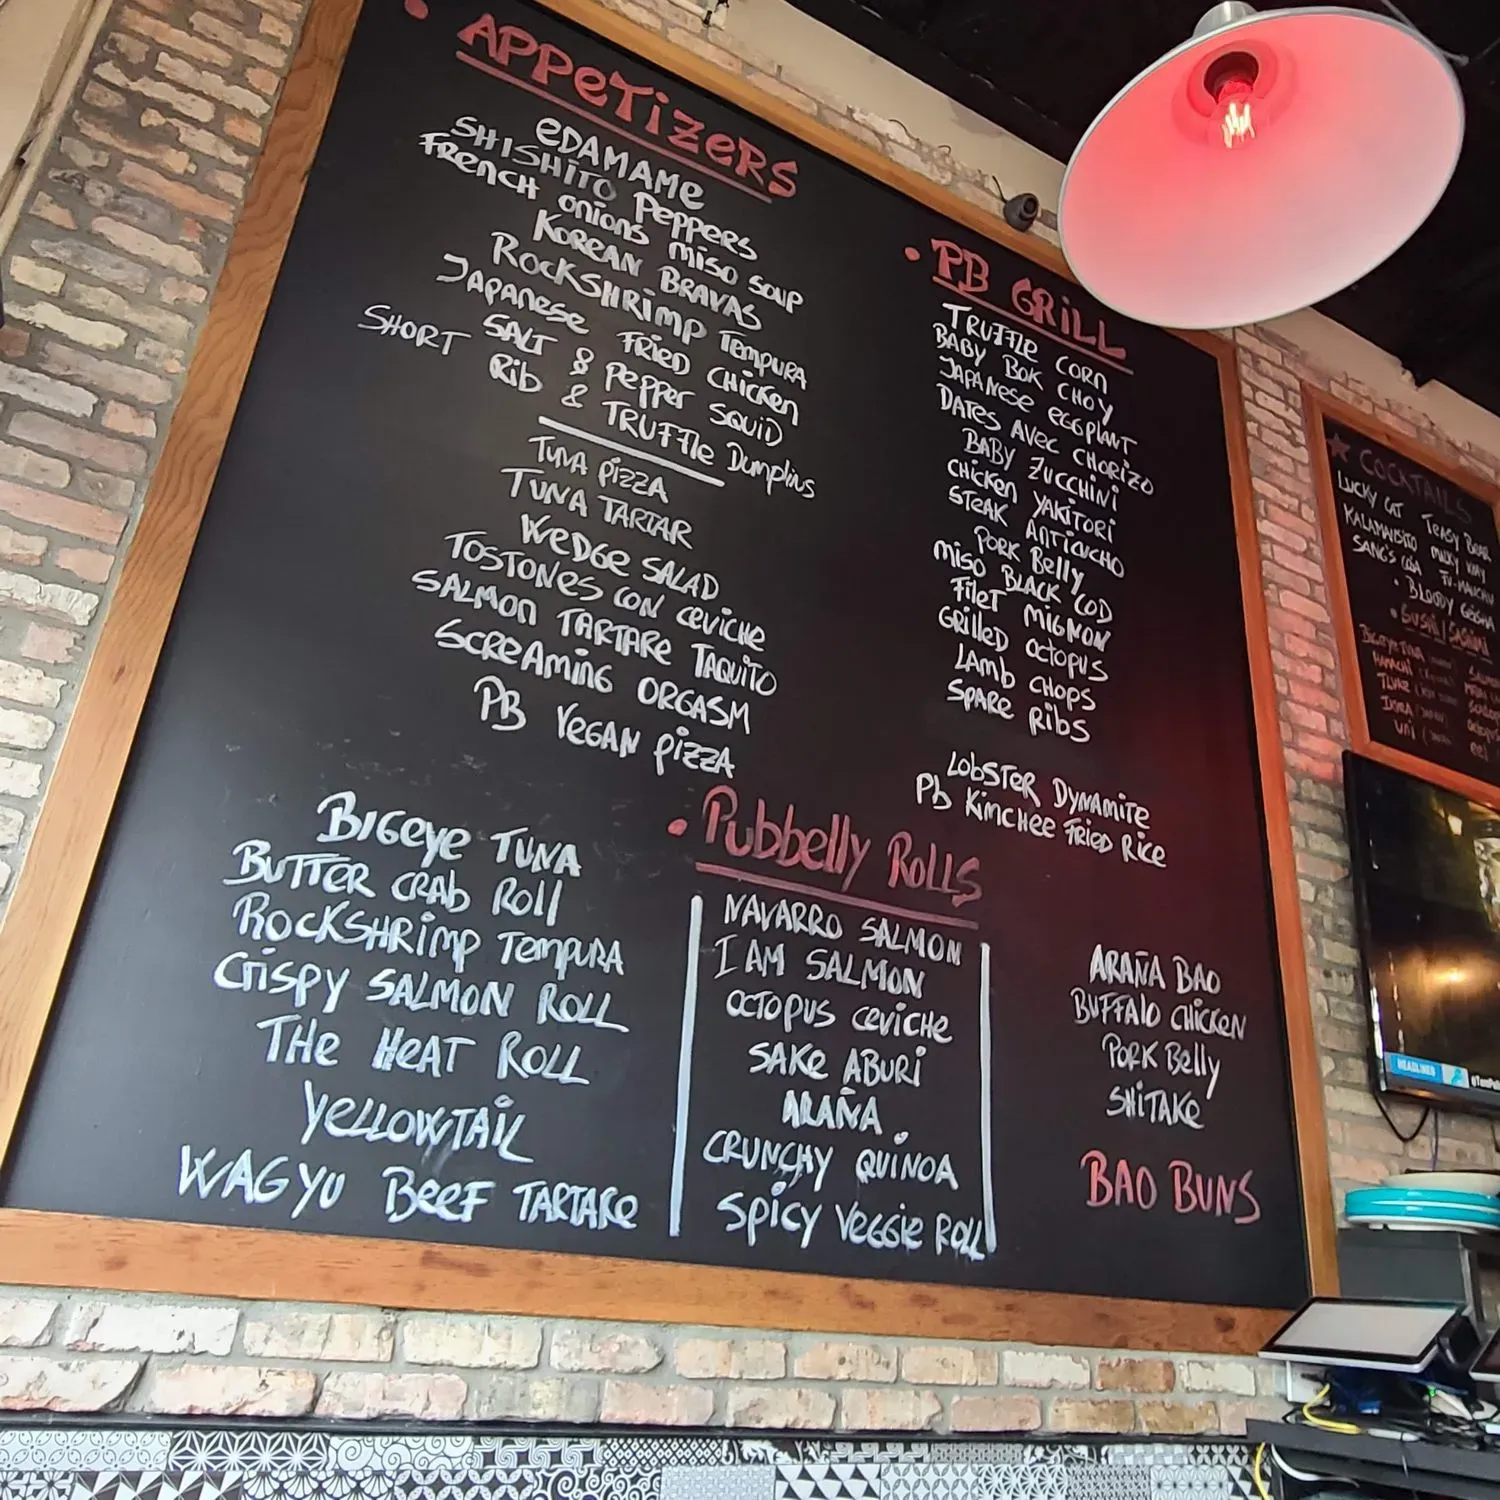 APPETIZERS
EDAMAME
SHISHITO PEPPERS
FRENCH ONIONS MISO SOUP
KOREAN BRAVAS
ROCKSHRIMP TEMPURA
JAPANESE FRIED CHICKEN
SALT & PEPPER SQUID
SHORT RIB & TRUFFLE DUMPLINS
TUNA PIZZA
TUNA TARTAR
WEDGE SALAD
TOSTONES CON CEVICHE
SALMON TARTARE TAQUITO
SCREAMING ORGASM
PB VEGAN PIZZA
PB GRILL
TRUFFLE CORN
BABY BOK CHOY
JAPANESE EGGPLANT
DATES AVEC CHORIZO
BABY ZUCCHINI
CHICKEN YAKITORI
STEAK ANTICUCHO
PORK BELLY
MISO BLACK COD
FILET MIGNON
GRILLED OCTOPUS
LAMB CHOPS
SPARE RIBS
LOBSTER DYNAMITE
PB KIMCHEE FRIED RICE
Pubbelly ROLLS
BIGEYE TUNA
BUTTER CRAB ROLL
ROCKSHRIMP TEMPURA
CRISPY SALMON ROLL
THE HEAT ROLL
YELLOWTAIL
WAGYU BEEF TARTARE
NAVARRO SALMON
I AM SALMON
OCTOPUS CEVICHE
SAKE ABURI
ARAÑA
CRUNCHY QUINOA
SPICY VEGGIE ROLL
ARAÑA BAO
BUFFALO CHICKEN
PORK BELLY
SHITAKE
BAO BUNS
COCKTAILS
LUCKY CAT TEASY BEAR
KALAMANSITO MILKY WAY
BLOODY GEISHA
BIGEYE TUNA
HAMACHI
UNI
HEADLINES